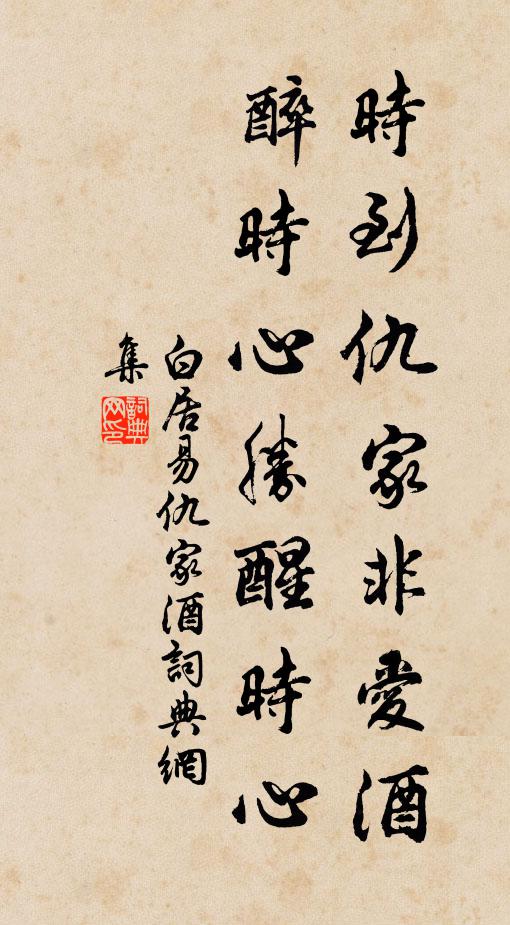 時到仇家非愛酒
醉時心勝醒時心
白居易仇家酒詞典網
集
詞典网印